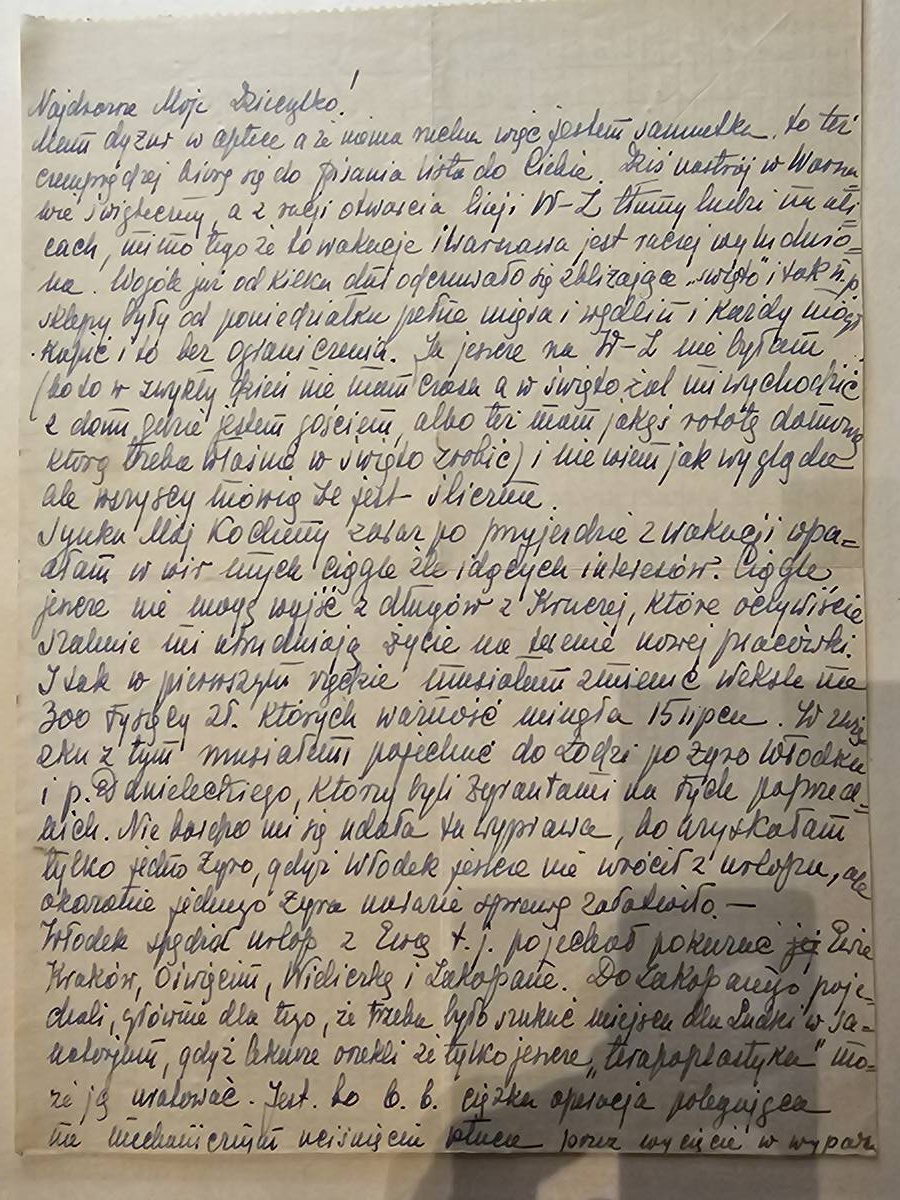 Najdrozsze Moje Dziecątko!
Mam dyżur w aptece a że niema ruchu więc jestem samiutka, to też
czemprędzej biorę się do pisania listu do Ciebie. Dziś nastrój w Warsza
wie świąteczny, a z racji otwarcia linji W-Z tłumy ludzi na uli=
cach, mimo tego że to wakacje i Warszawa jest raczej wyludnio=
na. Wogóle już od kilku dni odczuwało się zbliżające „święto" i tak n.p
sklepy były od poniedziałku pełne mięsa i wędlin i każdy mógł
kupić i to bez ograniczenia. Ja jeszcze na W-Z nie byłam
(bo to w zwykły dzień nie mam czasu a w święto żal mi wychodzić
z domu gdzie jestem gościem, albo też mam jakąś robotę domową
którą trzeba właśnie w święto zrobić) i nie wiem jak wygląda
ale wszyscy mówią że jest śliczna.
Synku Mój Kochany zaraz po przyjezdzie z wakacji wpa=
dłam w wir mych ciągle źle idących interesów. Ciągle
jeszcze nie mogę wyjść z długów z Kruczej, które oczywiście
szalenie mi utrudniają życie na terenie nowej placówki.
I tak w pierwszym rzędzie musiałam zmienić weksle na
300 tysięcy zł. których ważność minęła 15 lipca. W zwią
zku z tym musiałam pojechać do Łodzi po żyro Włodka
i p. Danieleckiego, którzy byli żyrantami na tych poprzed=
nich. Nie bardzo mi się udała ta wyprawa, bo uzyskałam
tylko jedno żyro, gdyż Włodek jeszcze nie wrócił z urlopu, ale
okazanie jednego żyra narazie sprawę załatwiło. —
Włodek spędził urlop z Ewą t.j. pojechał pokazać jej Ewie
Kraków, Oświęcim, Wieliczkę i Zakopane. Do Zakopanego poje=
chali, głównie dla tego, że trzeba było szukać miejsca dla Ludki w sa=
natorjum, gdyż lekarze orzekli że tylko jeszcze „torapoplastyka" mo=
że ją uratować. Jest to b. b. ciężka operacja polegająca
na mechanicznym uciśnięciu płuca przez wycięcie w wypadku